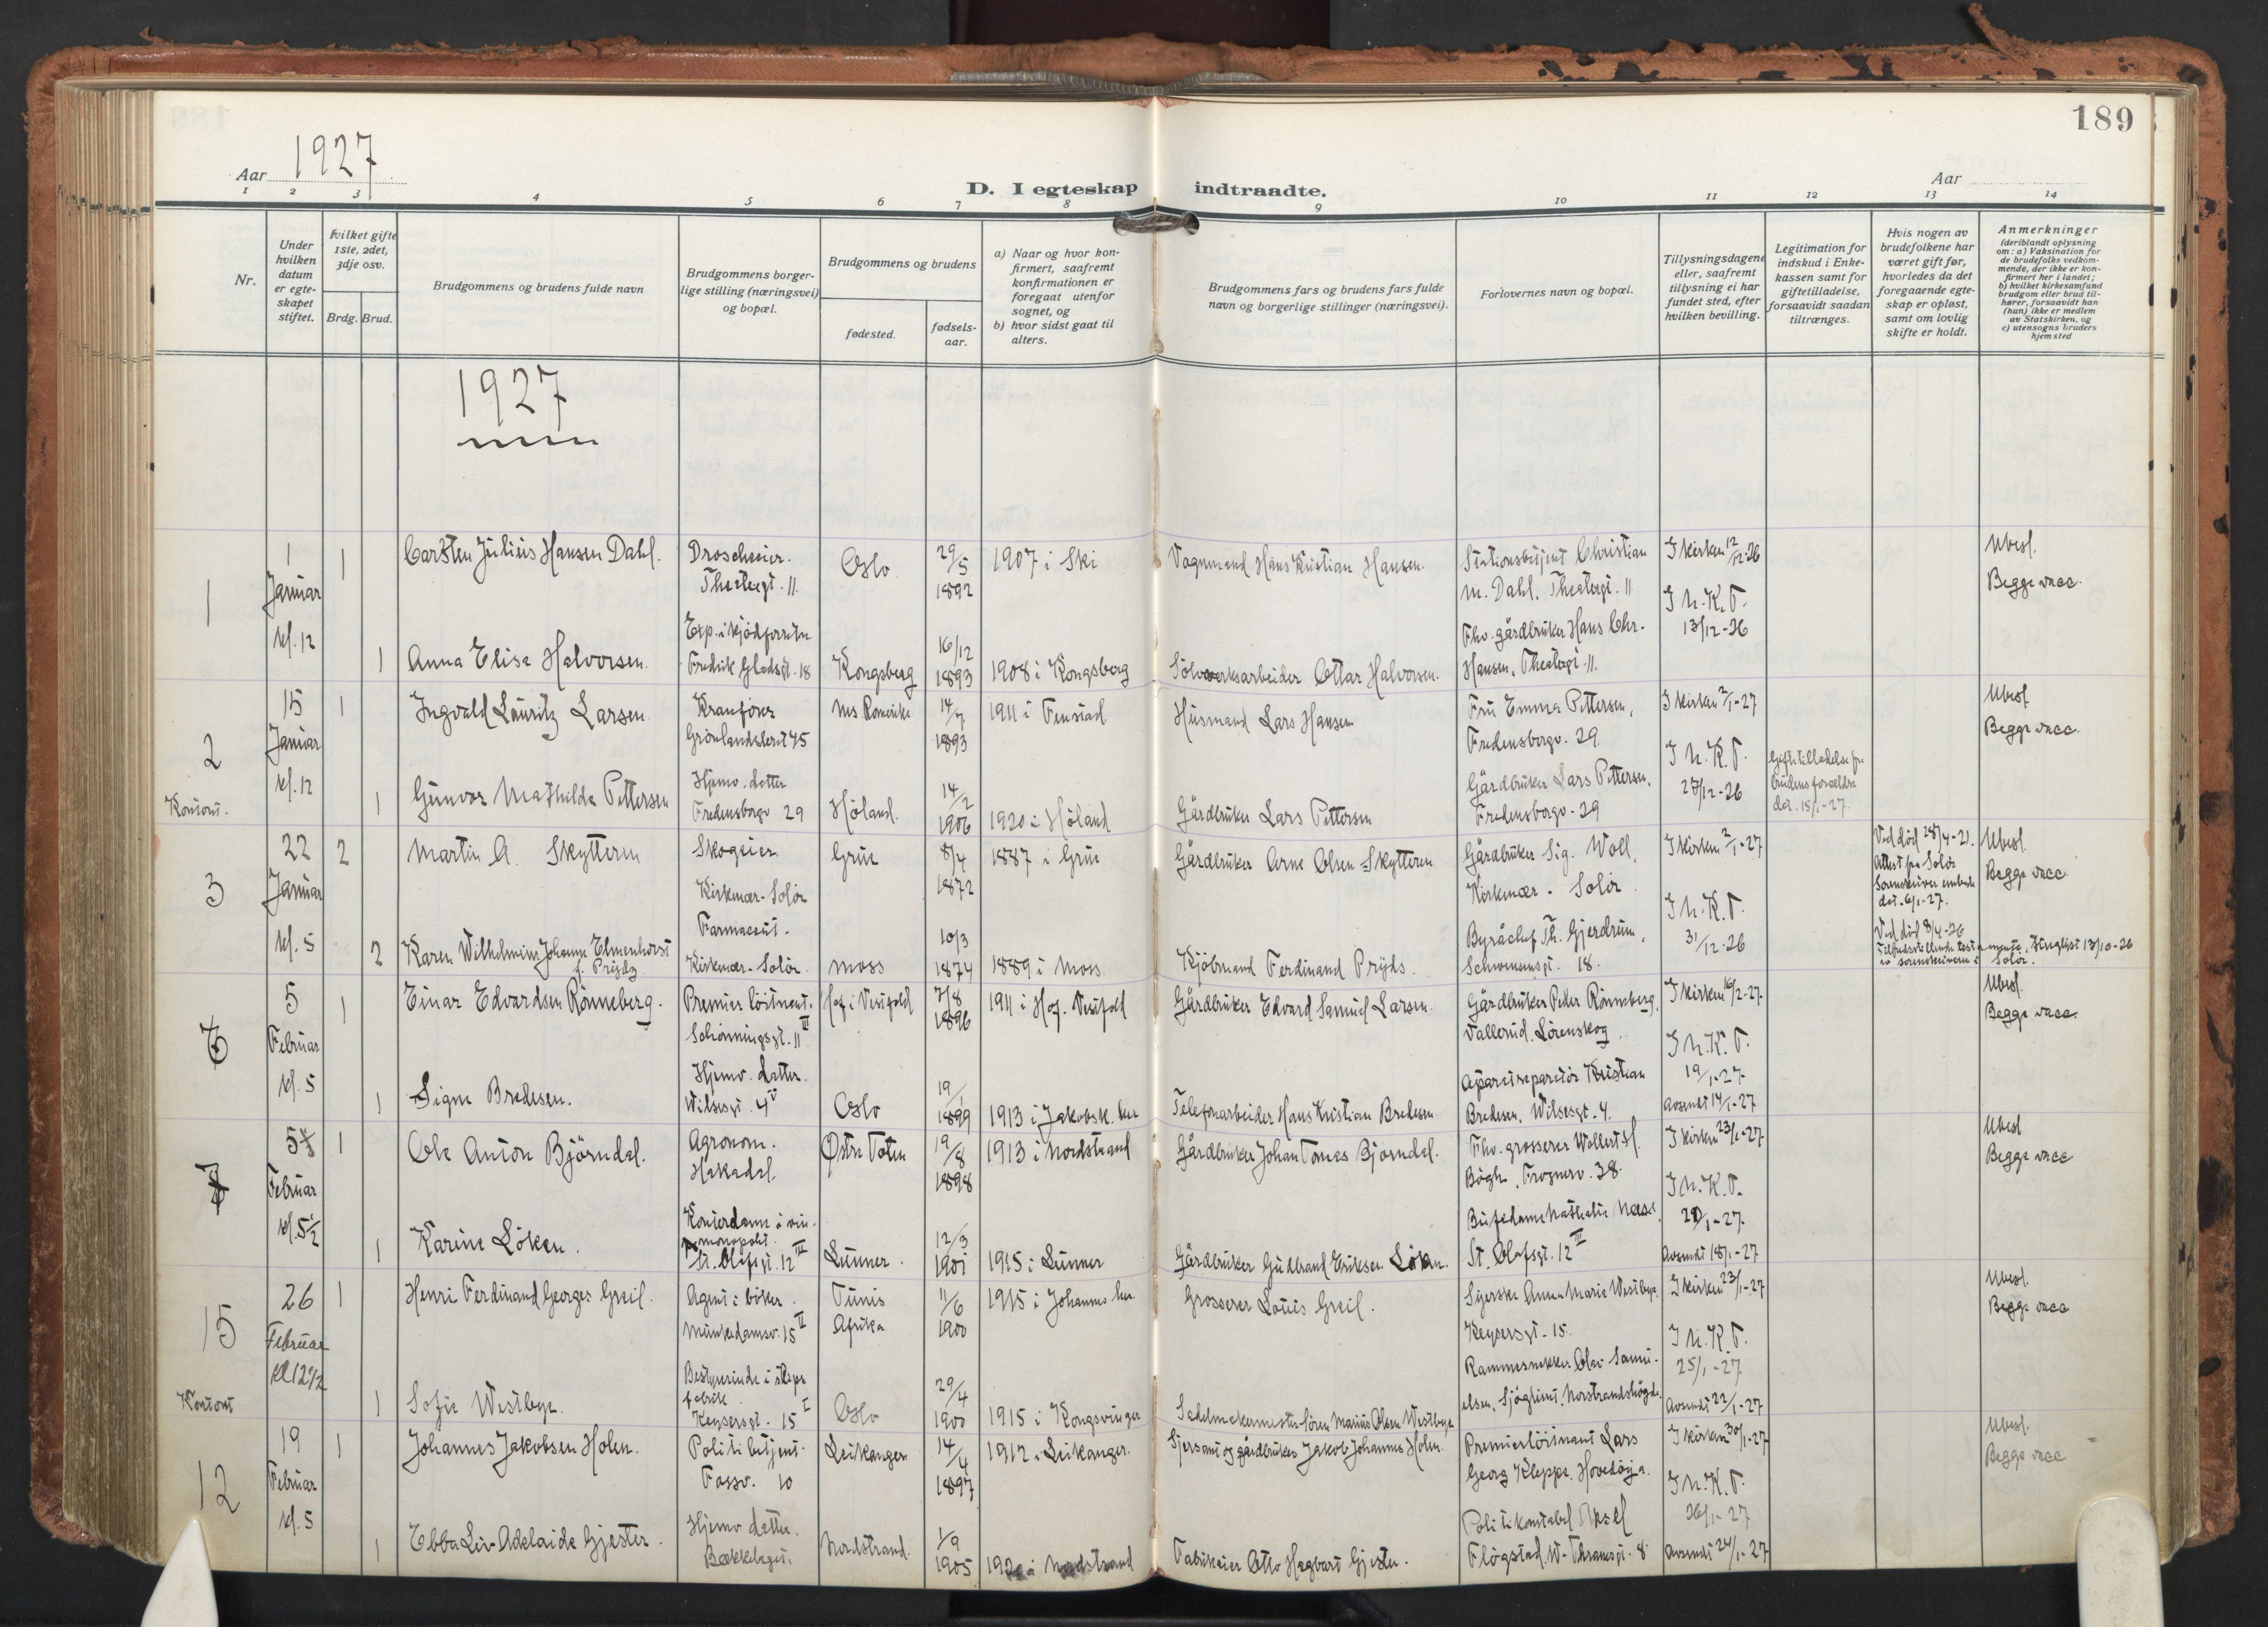 189
Aar 1927
D. I egteskap indtraadte.
Aar
1 2 3 4 5 6 7 8 9 10 11 12 13 14
Nr.
Under hvilken datum er egteskapet stiftet.
Hvilket gifte 1ste, 2det, 3dje osv.
Brdg. Brud.
Brudgommens og brudens fulde navn
Brudgommens borgerlige stilling (næringsvei) og bopæl.
Brudgommens og brudens
fødested.
fødselsaar.
a) Naar og hvor konfirmert, saafremt konfirmationen er foregaat utenfor sognet, og
b) hvor sidst gaat til alters.
Brudgommens fars og brudens fars fulde navn og borgerlige stillinger (næringsvei).
Forlovernes navn og bopæl.
Tillysningsdagene eller, saafremt tillysning ei har fundet sted, efter hvilken bevilling.
Legitimation for indskud i Enkekassen samt for giftetilladelse, forsaavidt saadan tiltrænges.
Hvis nogen av brudefolkene har været gift før, hvorledes da det foregaaende egteskap er opløst, samt om lovlig skifte er holdt.
Anmerkninger (deriblandt oplysning om: a) Vaksination for de brudefolks vedkommende, der ikke er konfirmert her i landet; b) hvilket kirkesamfund brudgom eller brud tilhører, forsaavidt han (hun) ikke er medlem av Statskirken, og c) utensogns bruders hjemsted
1927
1
1 Januar kl. 12
1 Carsten Julius Hansen Dahl. Droscheeier. Theatergt. 11. Oslo 29/5 1892 1907 i Ski Vognmand Hans Kristian Hansen.
1 Anna Elise Halvorsen. Exp. i kjødforretn Fredrik Gladsgt. 18 Kongsberg 16/12 1893 1908 i Kongsberg Sølvverksarbeider Ottar Halvorsen.
Stationsbetjent Christian M. Dahl. Theatergt. 11
Fhv. gårdbruker Hans Chr. Hansen, Theatergt. 11.
I kirken 12/12-26 I N.K.T. 13/12-26
Ubesl. Begge vacc.
2 Kontort.
15 Januar kl. 12
1 Ingvald Lauritz Larsen Kranfører Grønlandsleret 45 Nes Romerike 14/7 1893 1911 i Fenstad Husmand Lars Hansen
1 Gunvor Mathilde Pettersen Hjemv. datter Fredensborgv. 29 Høland. 14/2 1906 1920 i Høland Gårdbruker Lars Pettersen
Fru Emma Pettersen, Fredensborgv. 29.
Gårdbruker Lars Pettersen, Fredensborgv. 29
I kirken 2/1-27 I N.K.T. 27/12-26
Giftetilladelse fra brudens forældre dat. 15/1-27.
Ubesl. Begge vacc.
3
22 Januar kl. 5
2 Martin A. Skytteren Skogeier Kirkenær-Solør Grue 8/4 1872 1887 i Grue Gårdbruker Arne Olsen Skytteren
2 Karen Wilhelmine Johanne Elmenhorst f. Prydz Farmaceut. Kirkenær-Solør. Moss 10/3 1874 1889 i Moss. Kjøbmand Ferdinand Prydz.
Gårdbruker Sig. Woll, Kirkenær. Solør
Byråchef Th. Gjerdrum, Schwensensgt. 18.
I kirken 2/1-27 I N.K.T. 31/12-26
Ved død 28/4-21. Attest fra Solør Sorenskriverembede dat. 6/1-27.
Ved død 8/4-26
Ubesl. Begge vacc.
5 Februar kl. 5
1 Einar Edvardsen Rønneberg. Premierløitnant. Schønningsgt. 11 III Hof i Vestfold 7/8 1896 1911 i Hof. Vestfold Gårdbruker Edvard Samuel Larsen
1 Signe Bredesen. Hjemv. datter. Wilsesgt. 4 V Oslo 19/1 1899 1913 i Jakobsk. her Telefonarbeider Hans Kristian Bredesen
Gårdbruker Peder Rønneberg. Vallerud. Lørenskog.
Aparatreparatør Kristian Bredesen, Wilsesgt. 4.
I kirken 16/2-27. I N.K.T. 19/1-27. Avsendt 14/1-27
Ubesl. Begge vacc.
7
5 Februar kl. 5 1/2
1 Ole Anton Bjørndal. Agronom. Hakadal. Østre Toten 19/8 1898 1913 i Nordstrand Gårdbruker Johan Tomas Bjørndal.
1 Karine Løken. Kontordame i vinmonopolet. St. Olafsgt. 12 III Lunner. 12/3 1901 1915 i Lunner Gårdbruker Gudbrand Eriksen Løken.
Fhv. grosserer Wollert H. Bøgh, Frognerv. 38.
Bufedame Nathalie Næss. St. Olafsgt. 12 III
I kirken 23/1-27 I N.K.T. 20/1-27. Avsendt 18/1-27
Ubesl Begge vacc
15 Kontort
26 Februar kl 12 1/2
1 Henri Ferdinand Georges Greil. Agent i bøker. Munkedamsv. 15 II Tunis Afrika 11/6 1900 1915 i Johannes her Grosserer Louis Greil.
1 Sofie Westbye. Bestyrerinde i slipsfabrik Keysersgt. 15 I Oslo 29/4 1900 1915 i Kongsvinger Sadelmakermester Søren Marius Olsen Westbye
Syerske Anna Marie Westbye. Keysersgt. 15.
Rammesnekker Olav Samuelsen, Sjøglimt, Nordstrandshøgda.
I kirken 23/1-27 I N.K.T. 25/1-27. Avsendt 22/1-27
Ubesl. Begge vacc
12
19 Februar kl. 5
1 Johannes Jakobsen Holen. Politibetjent. Fossv. 10 Leikanger 14/4 1897 1912 i Leikanger. Sjersant og gårdbruker Jakob Johannes Holen
1 Ebba Liv Adelaide Gjester. Hjemv. datter. Bækkelaget. Nordstrand. 1/9 1905 1920 i Nordstrand Fabrikeier Otto Hagbart Gjester.
Premierløitnant Lars Georg Kleppe. Hovedøya.
Politikonstabel Aksel Fløgstad. W. Thranesgt. 8.
I kirken 30/1-27 I N.K.T. 26/1-27 Avsendt 24/1-27
Ubesl. Begge vacc